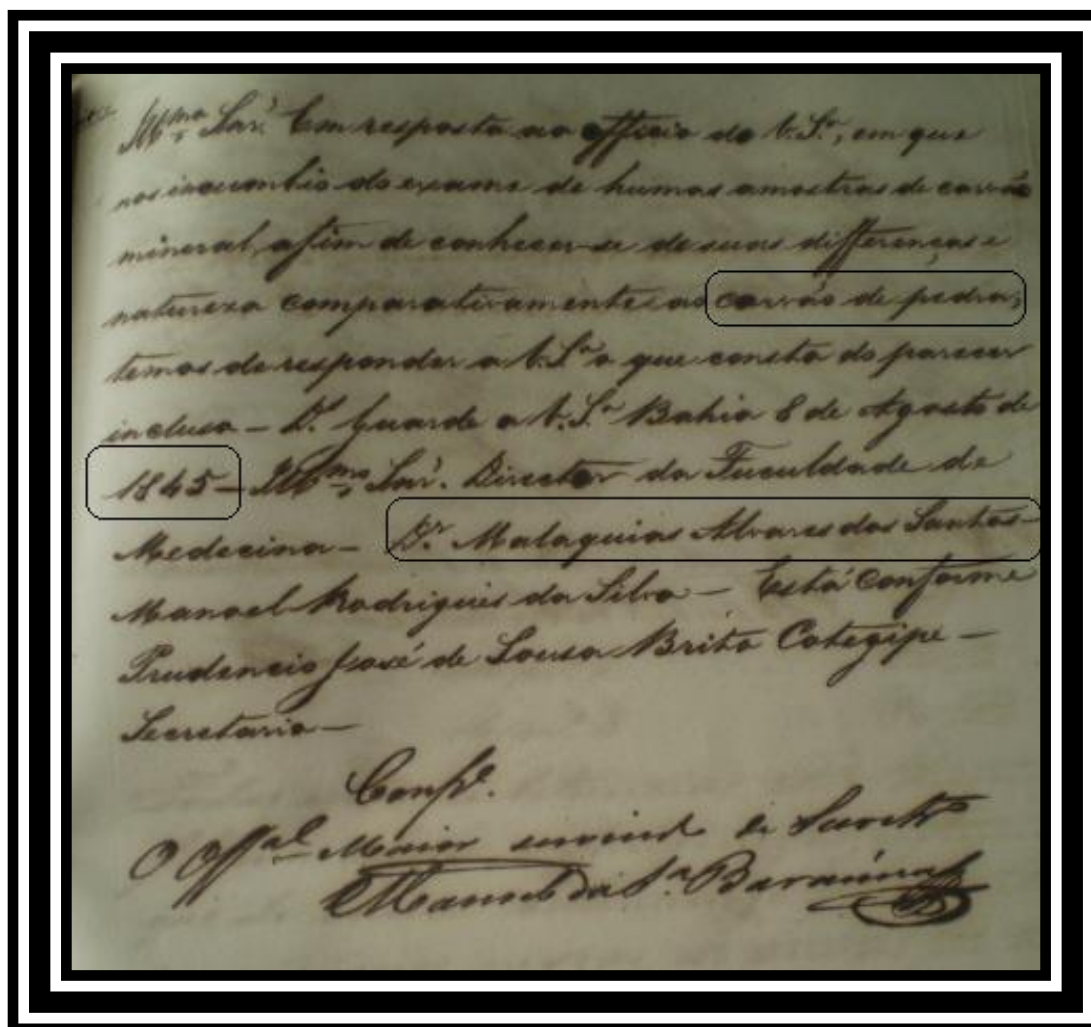 Ill.mo Snr.' Em resposta ao officio de V.S.ª, em que
nos incumbio do exame de humas amostras de carvão
mineral, afim de conhecer-se de suas differenças e
natureza comparativamente ao carvão de pedra,
temos de responder a V.S.ª o que consta do parecer
incluso – D.s Guarde a V.S.ª Bahia 8 de Agosto de
1845 – Ill.mo Snr. Director da Faculdade de
Medecina – D.r Malaquias Alvares dos Santos –
Manoel Rodrigues da Silva – Está conforme
Prudencio José de Sousa Brito Cotegipe –
Secretario –
Conf.e
O Off.al Maior servind. de Secret.º
Manoel da S.ª Baraúna